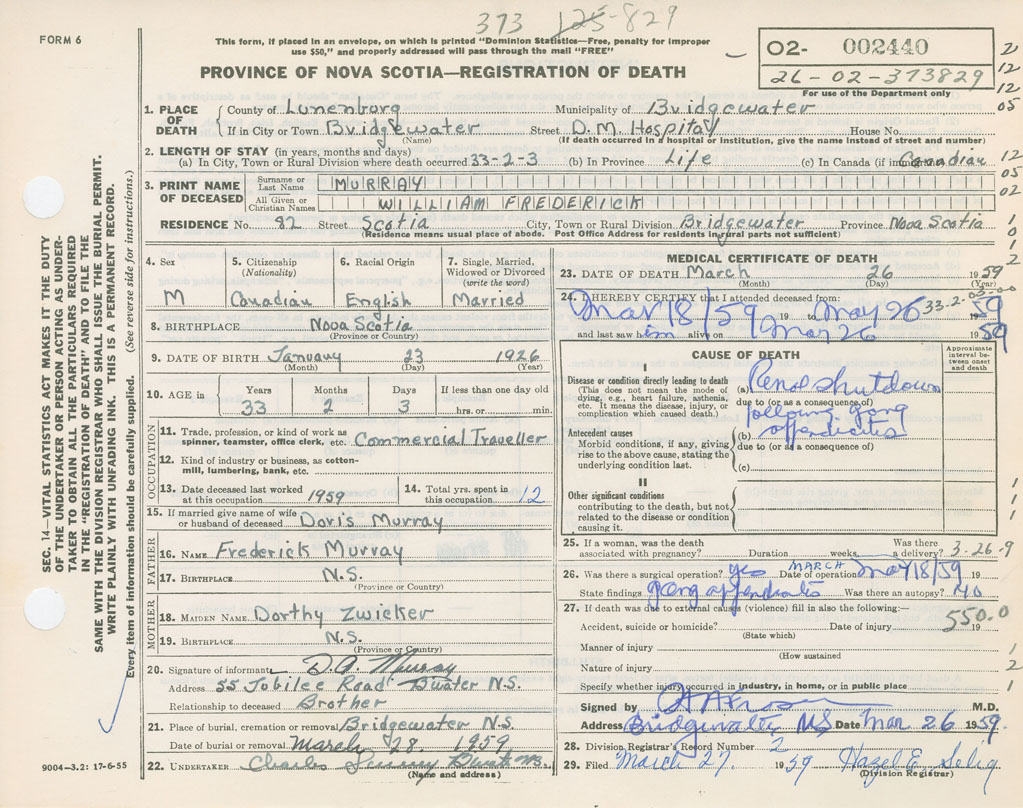 373 125-829
FORM 6
This form, if placed in an envelope, on which is printed "Dominion Statistics—Free, penalty for improper
use $50," and properly addressed will pass through the mail "FREE"
PROVINCE OF NOVA SCOTIA—REGISTRATION OF DEATH
02- 002440
26-02-373829
For use of the Department only
2
12
12
05
1. PLACE OF DEATH County of Lunenburg Municipality of Bridgewater
If in City or Town Bridgewater Street D.M. Hospital House No.
(Name) (If death occurred in a hospital or institution, give the name instead of street and number)
2. LENGTH OF STAY (in years, months and days)
(a) In City, Town or Rural Division where death occurred 33-2-3 (b) In Province Life (c) In Canada (if immi Canadian
12
05
02
3. PRINT NAME OF DECEASED Surname or Last Name MURRAY
All Given or Christian Names WILLIAM FREDERICK
RESIDENCE No. 82 Street Scotia City, Town or Rural Division Bridgewater Province Nova Scotia
(Residence means usual place of abode. Post Office Address for residents in rural parts not sufficient)
1
0
1
2
4. Sex M
5. Citizenship (Nationality) Canadian
6. Racial Origin English
7. Single, Married, Widowed or Divorced (write the word) Married
8. BIRTHPLACE Nova Scotia
(Province or Country)
9. DATE OF BIRTH January 23 1926
(Month) (Day) (Year)
10. AGE in Years 33 Months 2 Days 3 If less than one day old hrs. or min.
OCCUPATION
11. Trade, profession, or kind of work as spinner, teamster, office clerk, etc. Commercial Traveller
12. Kind of industry or business, as cotton-mill, lumbering, bank, etc.
13. Date deceased last worked at this occupation 1959
14. Total yrs. spent in this occupation 12
15. If married give name of wife or husband of deceased Doris Murray
FATHER
16. NAME Frederick Murray
17. BIRTHPLACE N.S.
(Province or Country)
MOTHER
18. MAIDEN NAME Dorthy Zwicker
19. BIRTHPLACE N.S.
(Province or Country)
20. Signature of informant D.A. Murray
Address 55 Jubilee Road Bwater N.S.
Relationship to deceased Brother
21. Place of burial, cremation or removal Bridgewater N.S.
Date of burial or removal March 28. 1959
22. UNDERTAKER Charles
(Name and address)
MEDICAL CERTIFICATE OF DEATH
23. DATE OF DEATH March 26 1959
(Month) (Day) (Year)
24. I HEREBY CERTIFY that I attended deceased from: 33-2-03-00
Mar 18/59 19 to Mar 26 1959
and last saw him alive on Mar 26 1959
CAUSE OF DEATH
Approximate interval between onset and death
I
Disease or condition directly leading to death
(This does not mean the mode of dying, e.g., heart failure, asthenia, etc. It means the disease, injury, or complication which caused death.)
(a) Renal shutdown
due to (or as a consequence of)
following gang
(b) appendicitis
due to (or as a consequence of)
(c)
Antecedent causes
Morbid conditions, if any, giving rise to the above cause, stating the underlying condition last.
II
Other significant conditions
contributing to the death, but not related to the disease or condition causing it.
1
1
1
25. If a woman, was the death associated with pregnancy? Duration weeks Was there a delivery? 3-26-9
26. Was there a surgical operation? yes Date of operation MARCH Mar 18/59 19
State findings gang appendicitis Was there an autopsy? no
27. If death was due to external causes (violence) fill in also the following:—
550.0
Accident, suicide or homicide? Date of injury 19
(State which)
Manner of injury 1
(How sustained
Nature of injury 2
Specify whether injury occurred in industry, in home, or in public place 1
Signed by M.D.
Address Bridgewater, NS Date Mar 26 1959.
28. Division Registrar's Record Number 2
29. Filed March 27. 1959 Hazel E. Selig
(Division Registrar)
SEC. 14—VITAL STATISTICS ACT MAKES IT THE DUTY
OF THE UNDERTAKER OR PERSON ACTING AS UNDER-
TAKER TO OBTAIN ALL THE PARTICULARS REQUIRED
IN THE "REGISTRATION OF DEATH" AND TO FILE THE
SAME WITH THE DIVISION REGISTRAR WHO SHALL ISSUE THE BURIAL PERMIT.
WRITE PLAINLY WITH UNFADING INK. THIS IS A PERMANENT RECORD.
Every item of information should be carefully supplied. (See reverse side for instructions.)
9004-3.2: 17-6-55